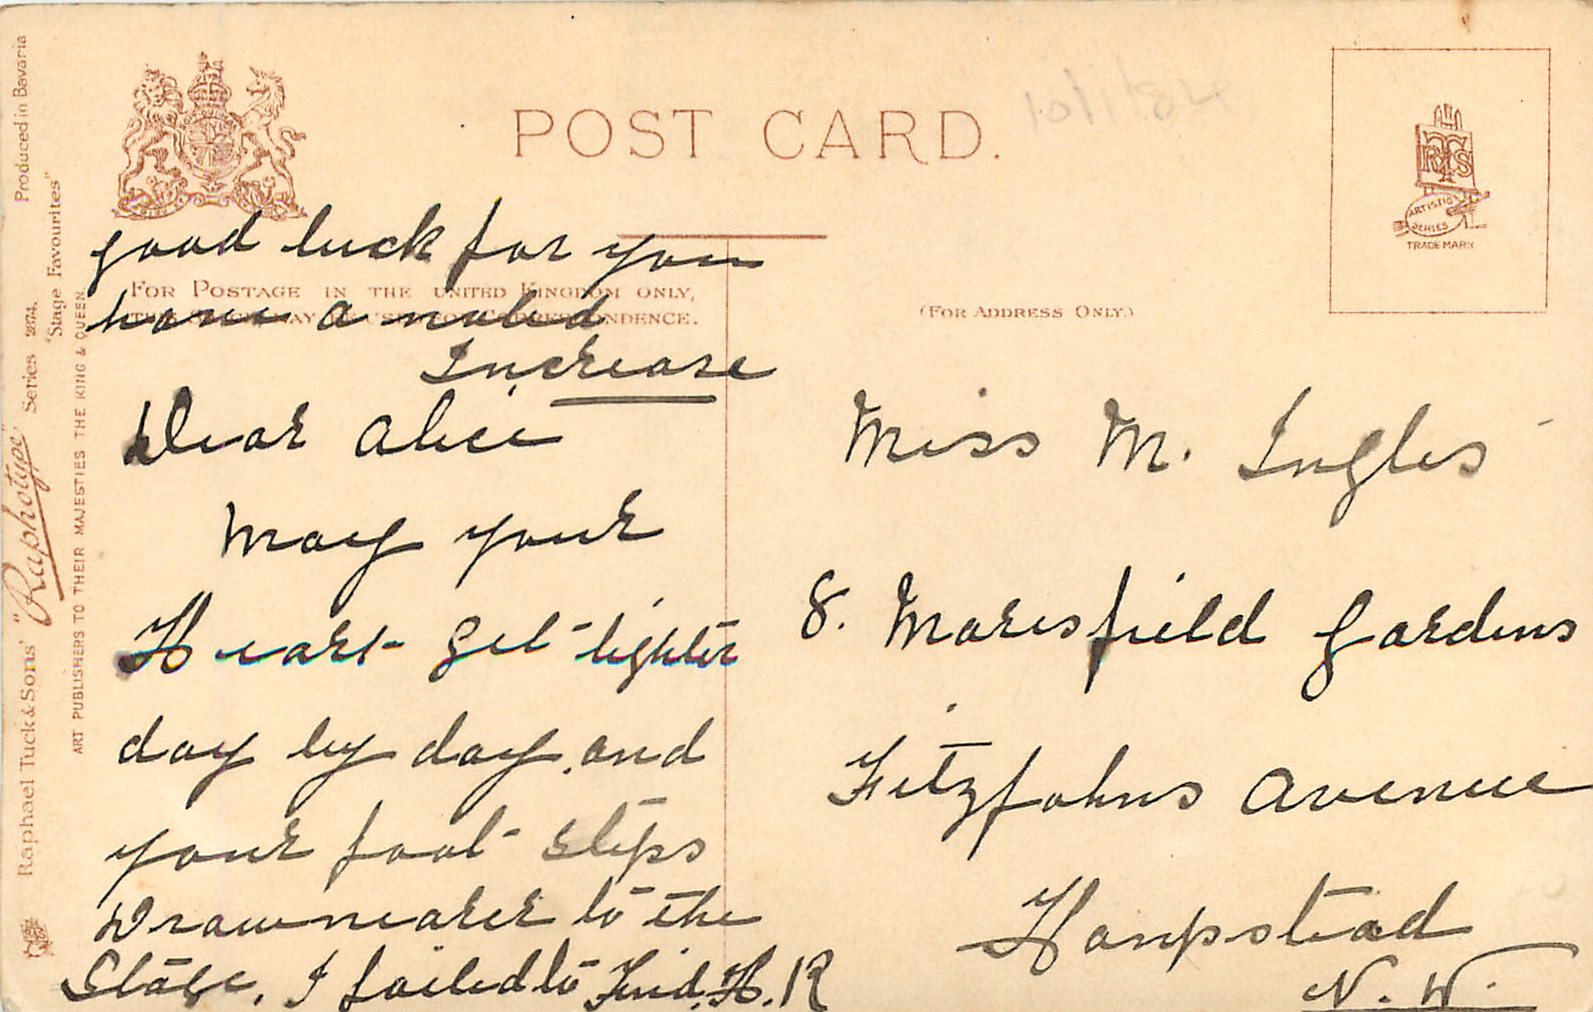 POST CARD.
10/1/82
ARTISTIC
SERIES
TRADE MARK
FOR POSTAGE IN THE UNITED KINGDOM ONLY,
(FOR ADDRESS ONLY.)
good luck for you
have a
Increase
Dear Alice
May your
Heart get lighter
day by day and
your foot steps
Draw nearer to the
Stage. I failed to Find. H. R
Miss M. Ingles
8. Maresfield Gardens
Fitzjohns Avenue
Hampstead
N. W.
Produced in Bavaria
"Stage Favourites"
Raphael Tuck & Sons' "Raphotype" Series 2874.
ART PUBLISHERS TO THEIR MAJESTIES THE KING & QUEEN.